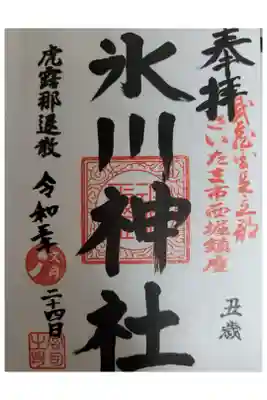 奉拝
武蔵国足立郡
さいたま市西堀鎮座
丑歳
氷川神社
虎露那退散
令和三年
文月
二十四日